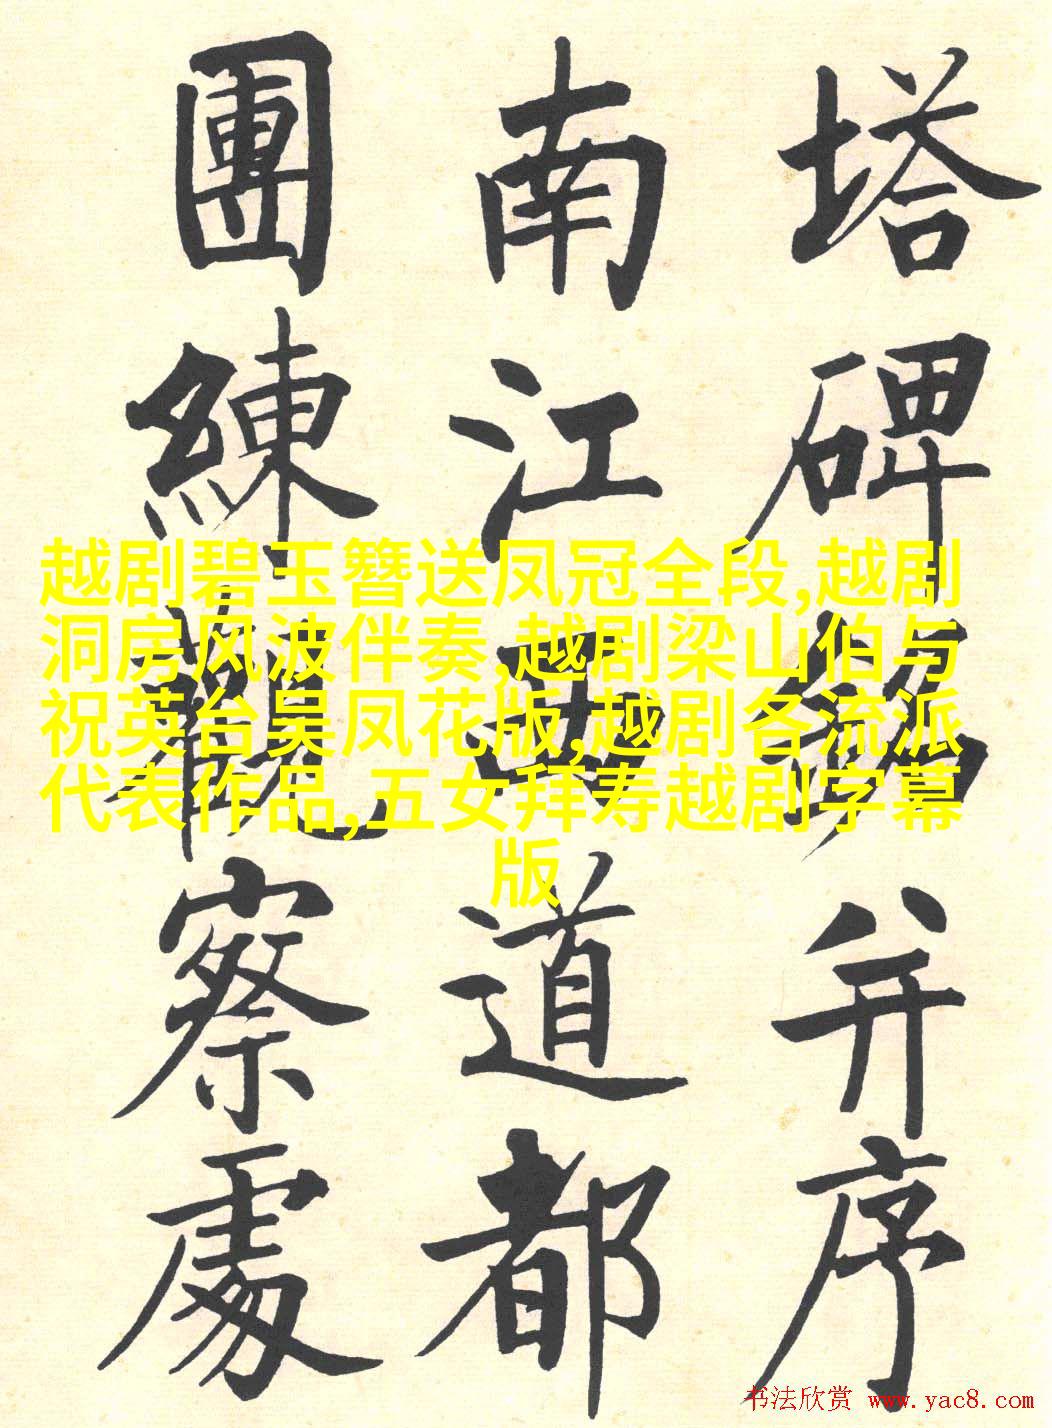 塔碑銘并序
南江西道都
團練觀察處
越剧碧玉簪送凤冠全段,越剧
洞房风波伴奏,越剧梁山伯与
祝英台吴凤花版,越剧各流派
代表作品,五女拜寿越剧字幕
版
书法欣赏 www.yac8.com